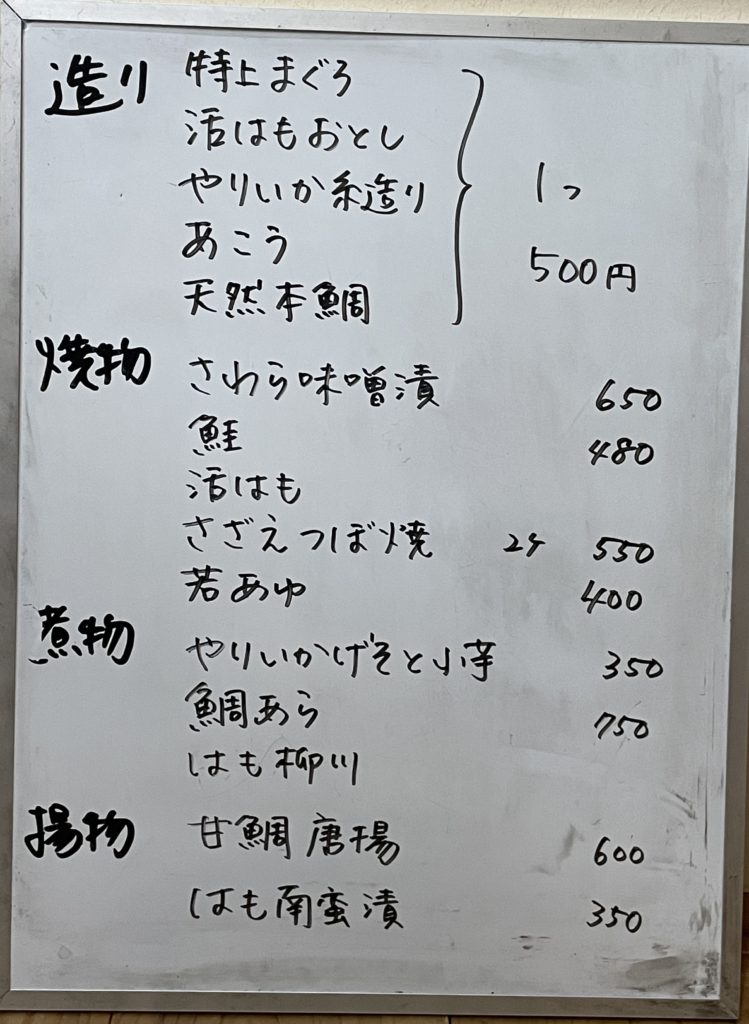 造り 特上まぐろ
活はもおとし
やりいか糸造り 1つ
あこう 500円
天然本鯛
焼物 さわら味噌漬 650
鮭 480
活はも
さざえつぼ焼 2ケ 550
若あゆ 400
煮物 やりいかげそと小芋 350
鯛あら 750
はも柳川
揚物 甘鯛唐揚 600
はも南蛮漬 350